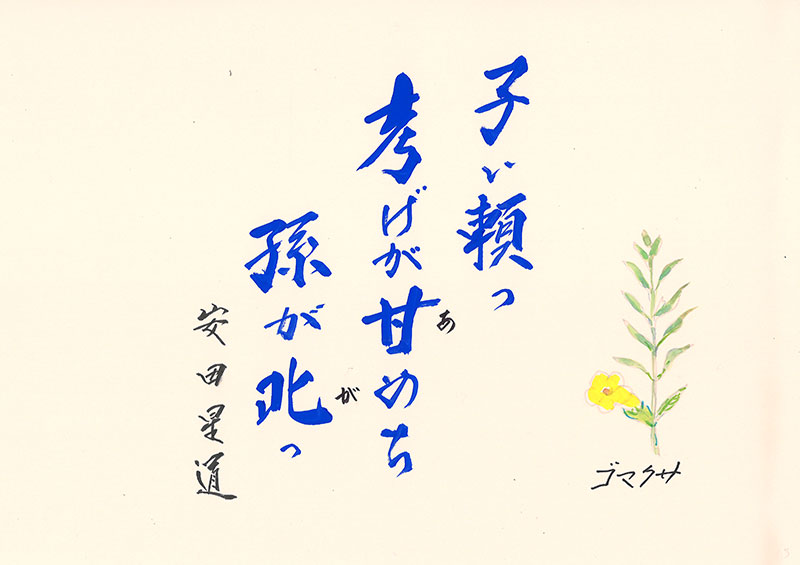 子い頼っ
考げが甘めち
あ
孫が叱っ
が
安田星道
ゴマクサ